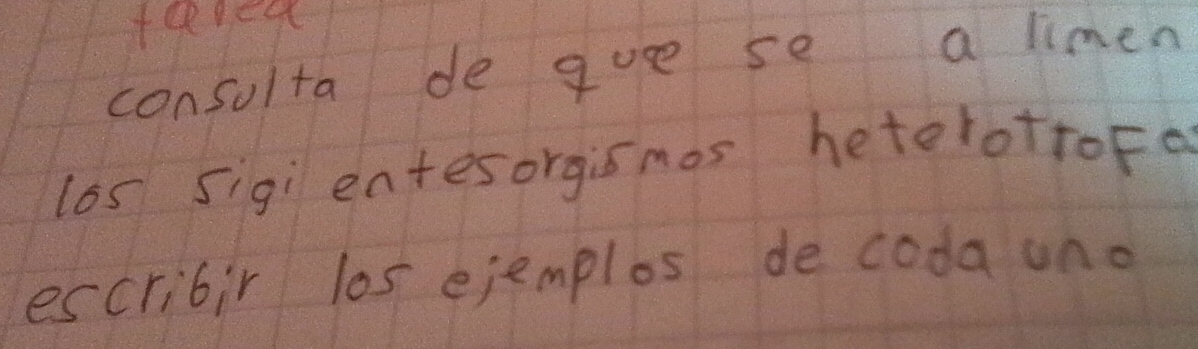 tarea
consulta de que se a limen
los sigi entesorgismos heterotrofo
escribir los ejemplos de coda uno